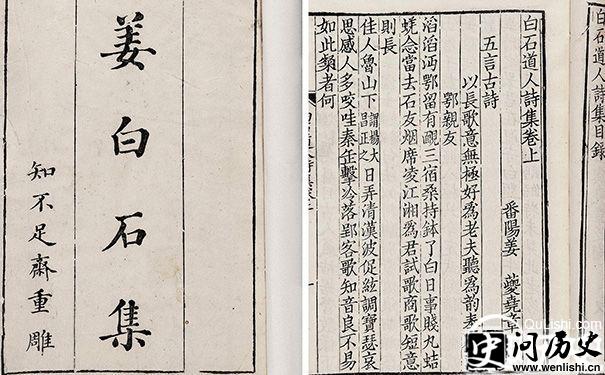 姜白石集
知不足齋重雕
白石道人詩集目録
白石道人詩集卷上
番陽姜 夔堯章
五言古詩
以長歌意無極好爲老夫聽爲韵奉
鄂親友
滔滔沔鄂留有靦三宿桑持鉢了白日事賤丸蛣
蜣念當去石友烟席凌江湘爲君試歌商歌短意
則長
佳人魯山下謂楊大昌正之日弄清漢波促絃調寶瑟哀
思感人多咬哇秦缶擊冷落郢客歌知音良不易
如此者何
QuLishi.com
史问历史
www.wenlishi.cn